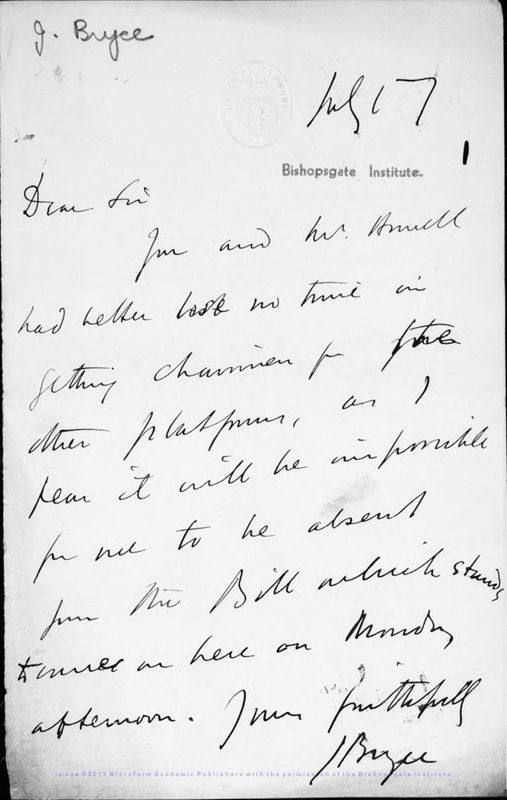 J. Bryce
July 17
Bishopsgate Institute.
Dear Sir
You and Mr. Howell
had better lose no time in
getting chairmen for the
other platforms, as I
fear it will be impossible
for me to be absent
from the Bill which stands
to come on here on Monday
afternoon. Yours faithfully
J Bryce
Image ©2013 Microform Academic Publishers with the permission of the Bishopsgate Institute